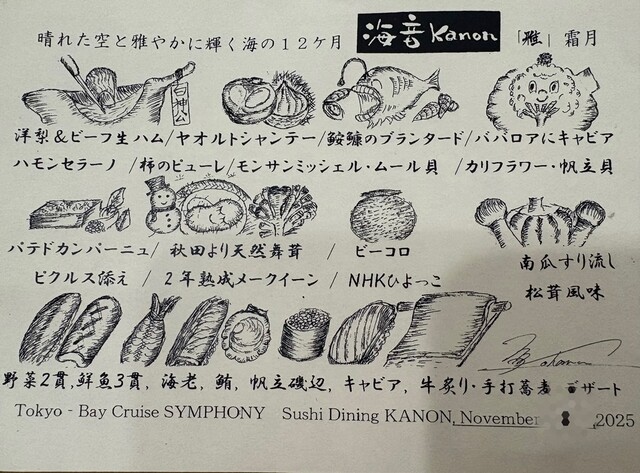 晴れた空と雅やかに輝く海の12ケ月
海音 Kanon
「雅」 霜月
白神公
洋梨&ビーフ生ハム/ヤオルトシャンテー/鮟鱇のブランタード/ババロアにキャビア
ハモンセラーノ / 柿のピューレ/モンサンミッシェル・ムール貝 /カリフラワー・帆立貝
パテドカンパーニュ/ 秋田より天然舞茸 / ピーコロ
ピクルス添え / 2年熟成メークイーン / NHKひよっこ
南瓜すり流し
松茸風味
野菜2貫,鮮魚3貫, 海老, 鮪, 帆立磯辺, キャビア, 牛炙り・手打蕎麦 デザート
Tokyo - Bay Cruise SYMPHONY Sushi Dining KANON, November 8 ,2025